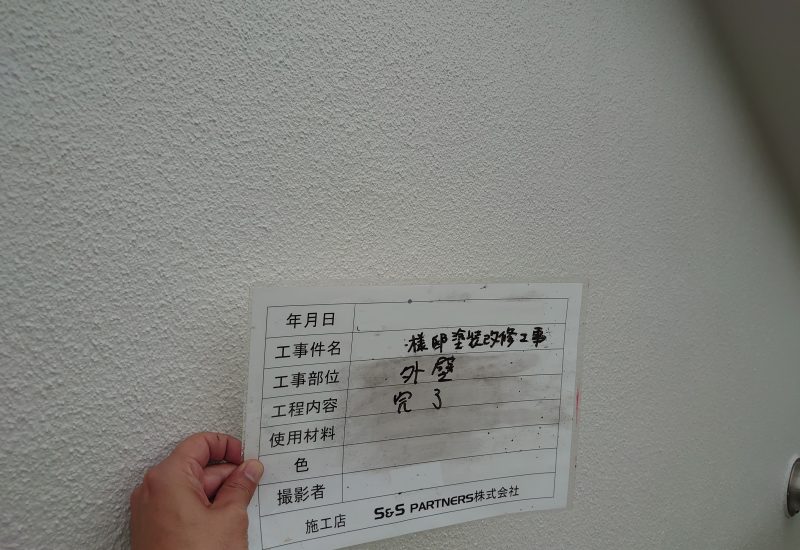 年月日
工事件名 様邸塗装改修工事
工事部位 外壁
工程内容 完了
使用材料
色
撮影者
施工店 S&S PARTNERS株式会社